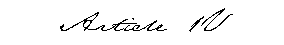 Article IV